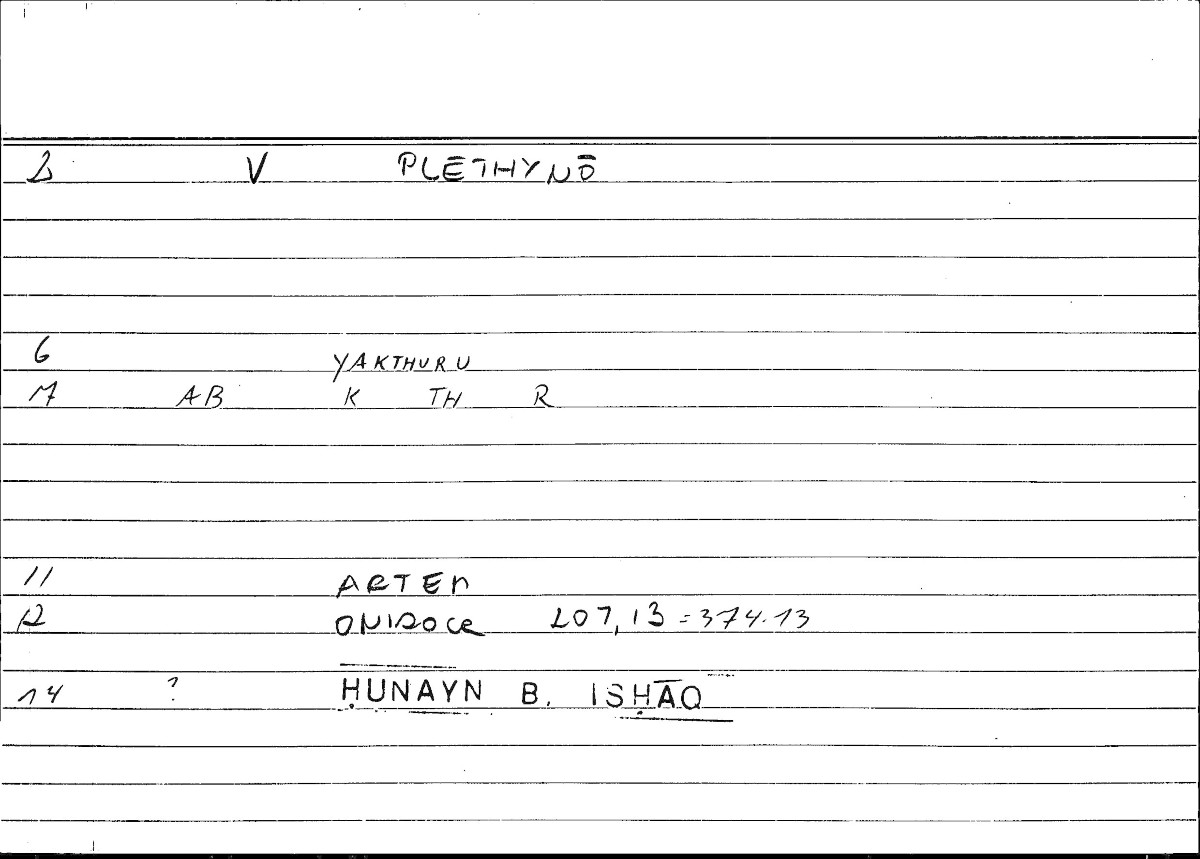 2 V PLĒTHYNŌ
6 YAKTHURU
7 AB K TH R
11 ARTEM
12 ONIROCR 207,13 = 374.13
14 ? ḤUNAYN B. ISḤĀQ